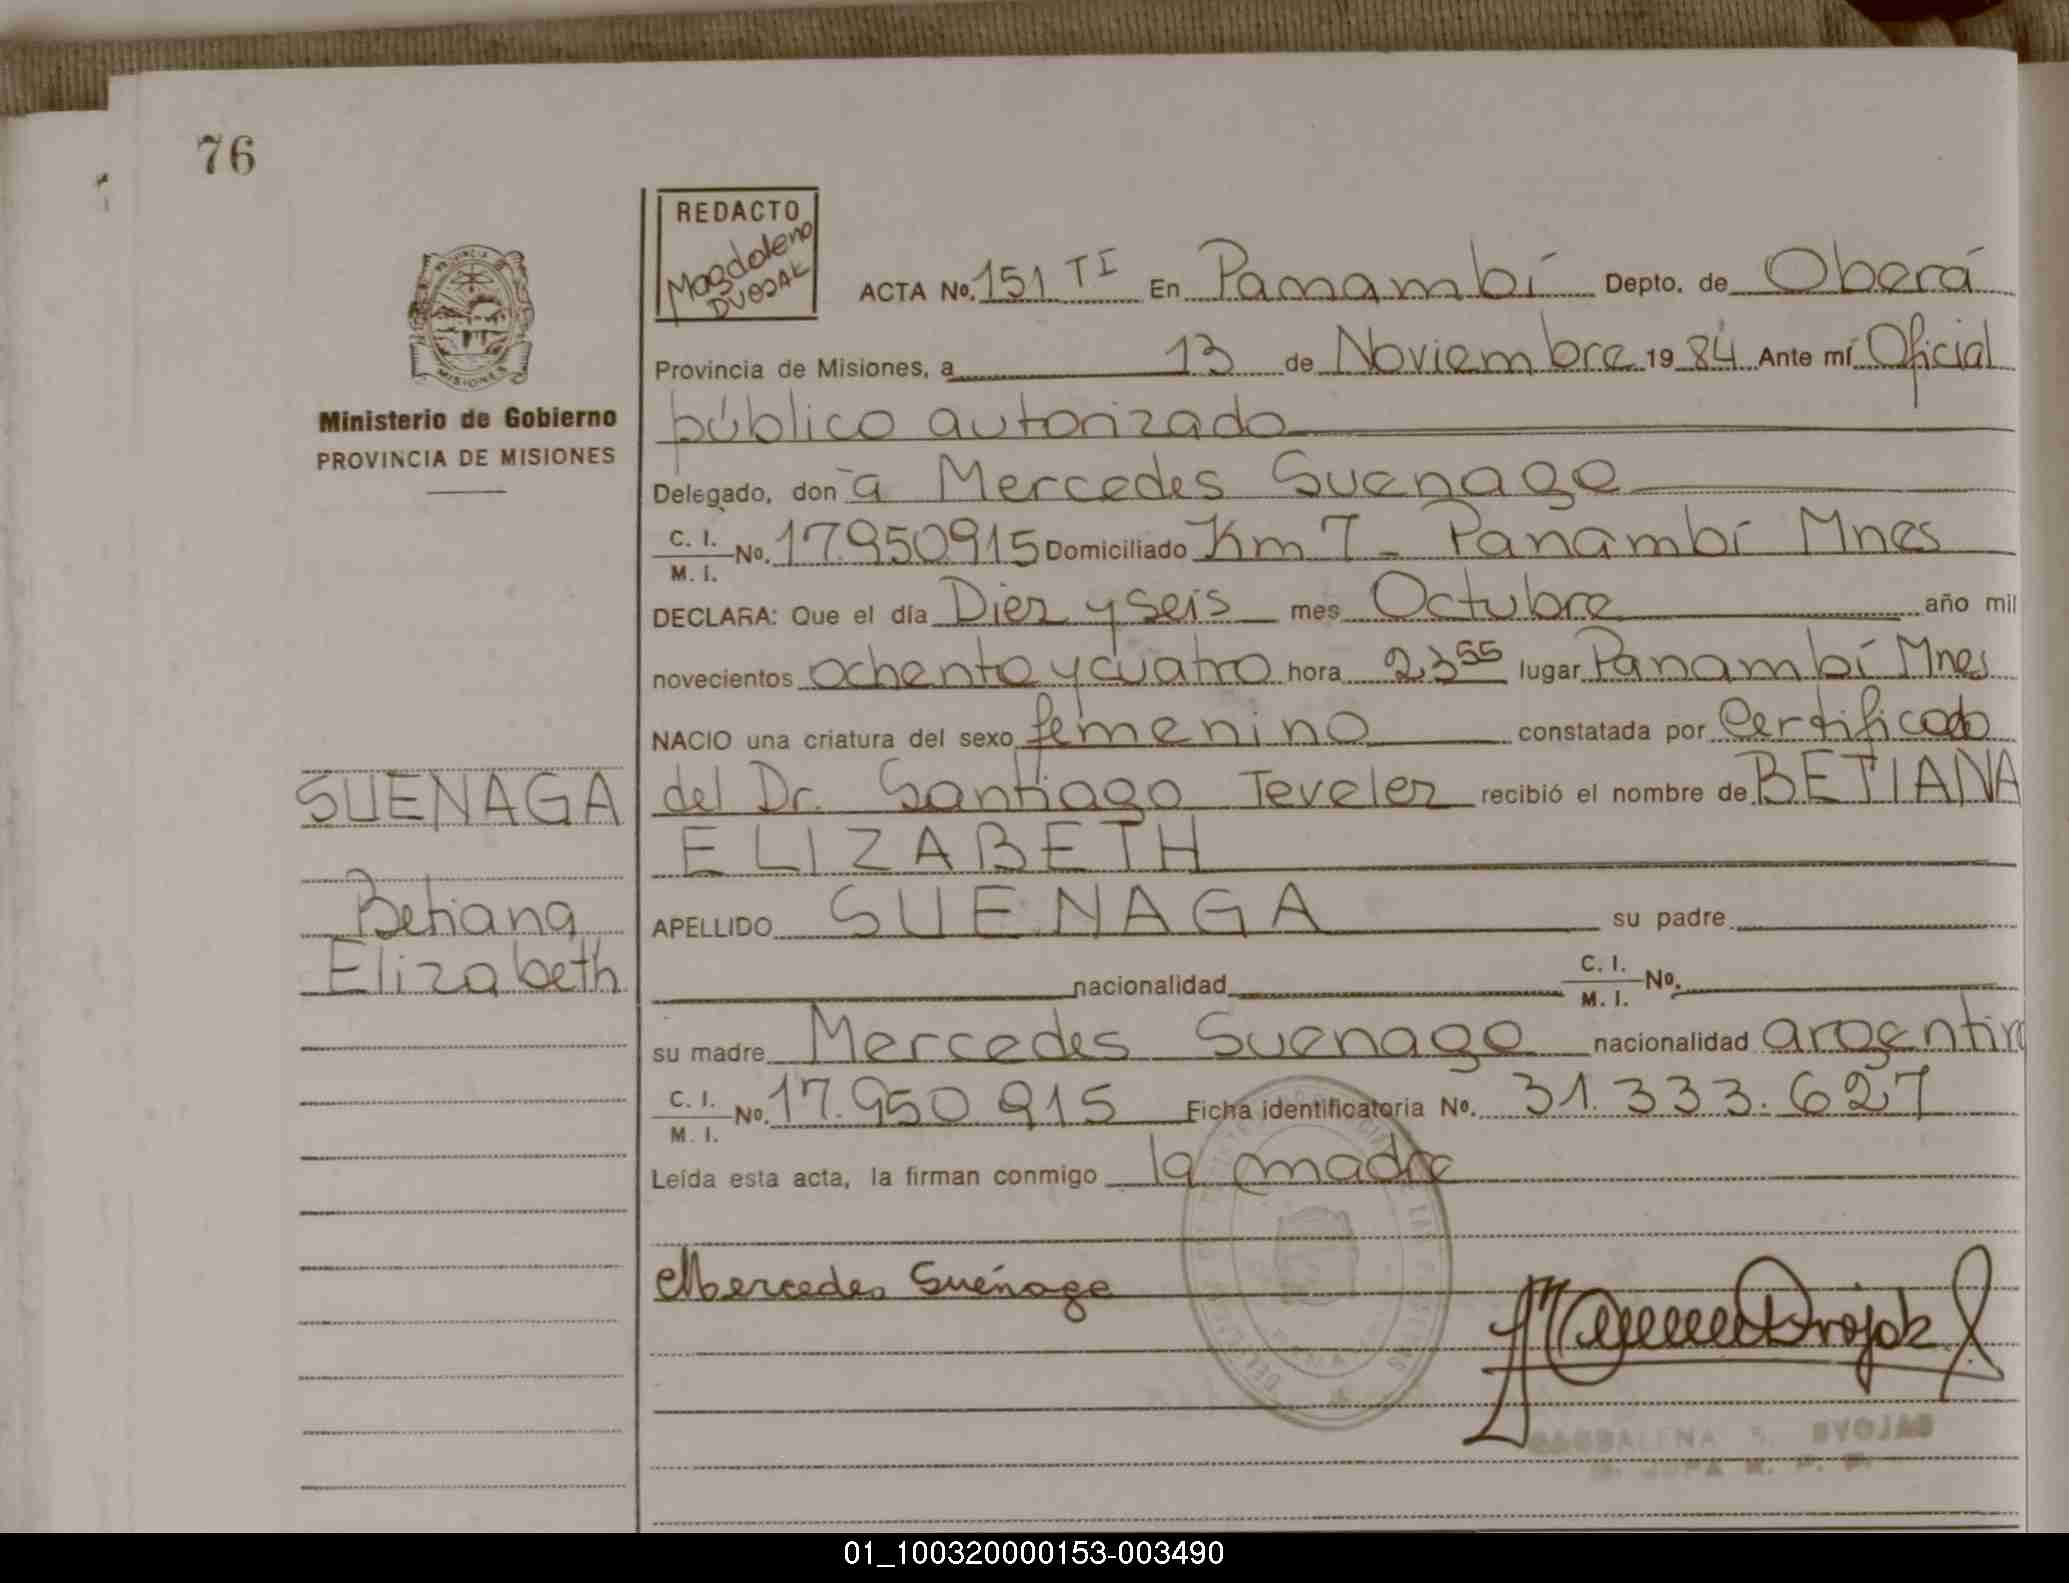 76
REDACTO
Magdalena
DVOJAK
ACTA No. 151 TI En Panambí Depto. de Oberá
Provincia de Misiones, a 13 de Noviembre 19 84 Ante mí Oficial
público autorizado
Delegado, don a Mercedes Suenaga
C. I.
M. I. No. 17.950.915 Domiciliado Km 7 - Panambí Mnes
DECLARA: Que el día Diez y seis mes Octubre año mil
novecientos ochenta y cuatro hora 23 55 lugar Panambí Mnes
NACIO una criatura del sexo femenino constatada por Certificado
del Dr. Santiago Teveler recibió el nombre de BETIANA
ELIZABETH
APELLIDO SUENAGA su padre
nacionalidad C. I.
M. I. No.
su madre Mercedes Suenaga nacionalidad argentina
C. I.
M. I. No. 17.950.915 Ficha identificatoria No. 31.333.627
Leída esta acta, la firman conmigo la madre
Mercedes Sueñaga
PROVINCIA DE
MISIONES
Ministerio de Gobierno
PROVINCIA DE MISIONES
SUENAGA
Betiana
Elizabeth
MAGDALENA
01_100320000153-003490